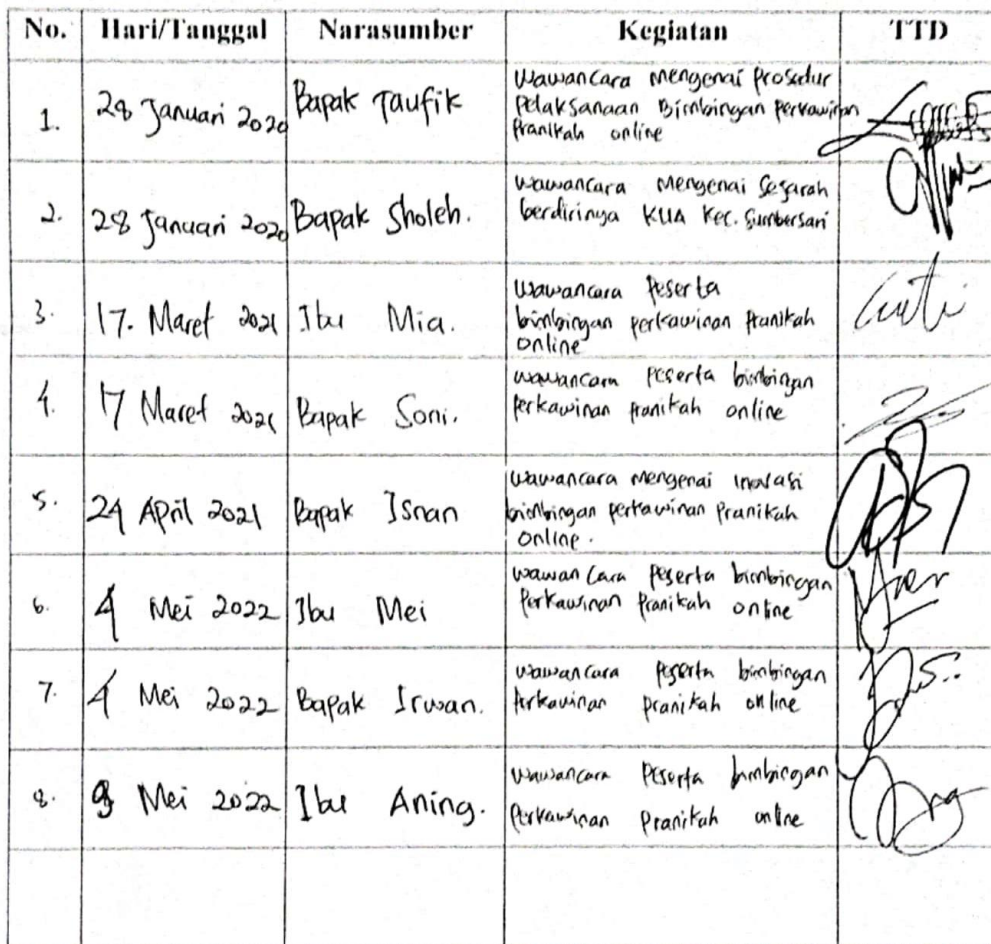 No. Hari/Tanggal Narasumber Kegiatan TTD
1. 28 Januari 2020 Bapak Taufik Wawancara mengenai Prosedur
Pelaksanaan Bimbingan perkawinan
Pranikah online
2. 28 Januari 2020 Bapak Sholeh. Wawancara Mengenai Sejarah
berdirinya KUA Kec. Sumbersari
3. 17. Maret 2021 Ibu Mia. Wawancara Peserta
bimbingan perkawinan Pranikah
online
4. 17 Maret 2021 Bapak Soni. Wawancara Peserta bimbingan
Perkawinan Pranikah online
5. 24 April 2021 Bapak Isnan Wawancara mengenai inovasi
bimbingan perkawinan Pranikah
online.
6. 4 Mei 2022 Ibu Mei Wawancara Peserta bimbingan
Perkawinan Pranikah online
7. 4 Mei 2022 Bapak Irwan. Wawancara Peserta bimbingan
Perkawinan Pranikah online
8. 9 Mei 2022 Ibu Aning. Wawancara Peserta bimbingan
Perkawinan Pranikah online